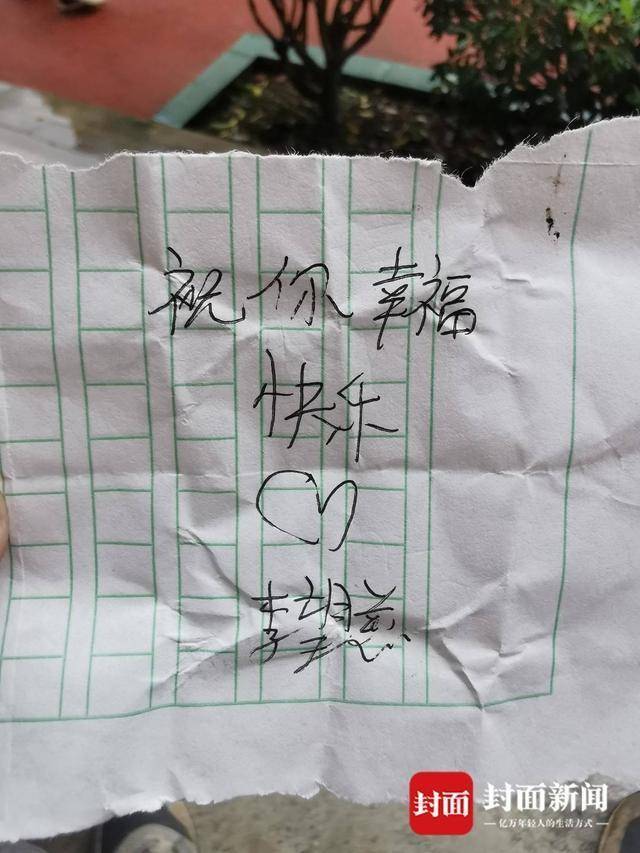 祝你幸福
快乐
李望慈
封面
封面新闻
亿万年轻人的生活方式